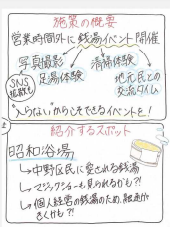 施策の概要
営業時間外に銭湯イベント開催
写真撮影
清掃体験
SNS
拡散も
足湯体験
地元民との
交流タイム
"入らない"からこそできるイベントを!
紹介するスポット
昭和浴場
→中野区民に愛される銭湯
→マジックショーも見られるかも?!
→個人経営の銭湯のため、融通が
きくかも?!